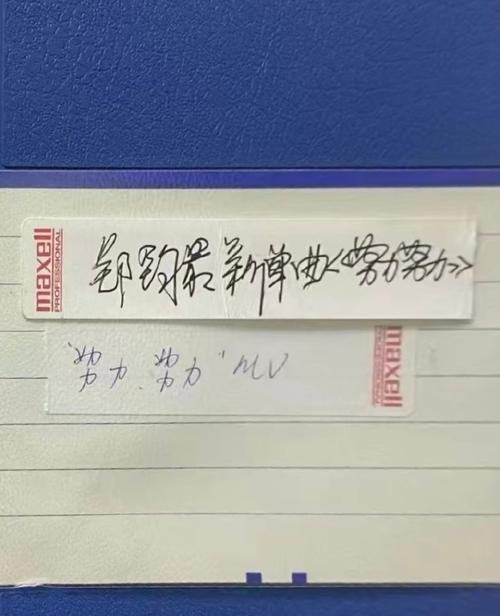 maxell
PROFESSIONAL
郑钧最新单曲《努力努力》
"努力.努力"MV
maxell
PROFESSIONAL